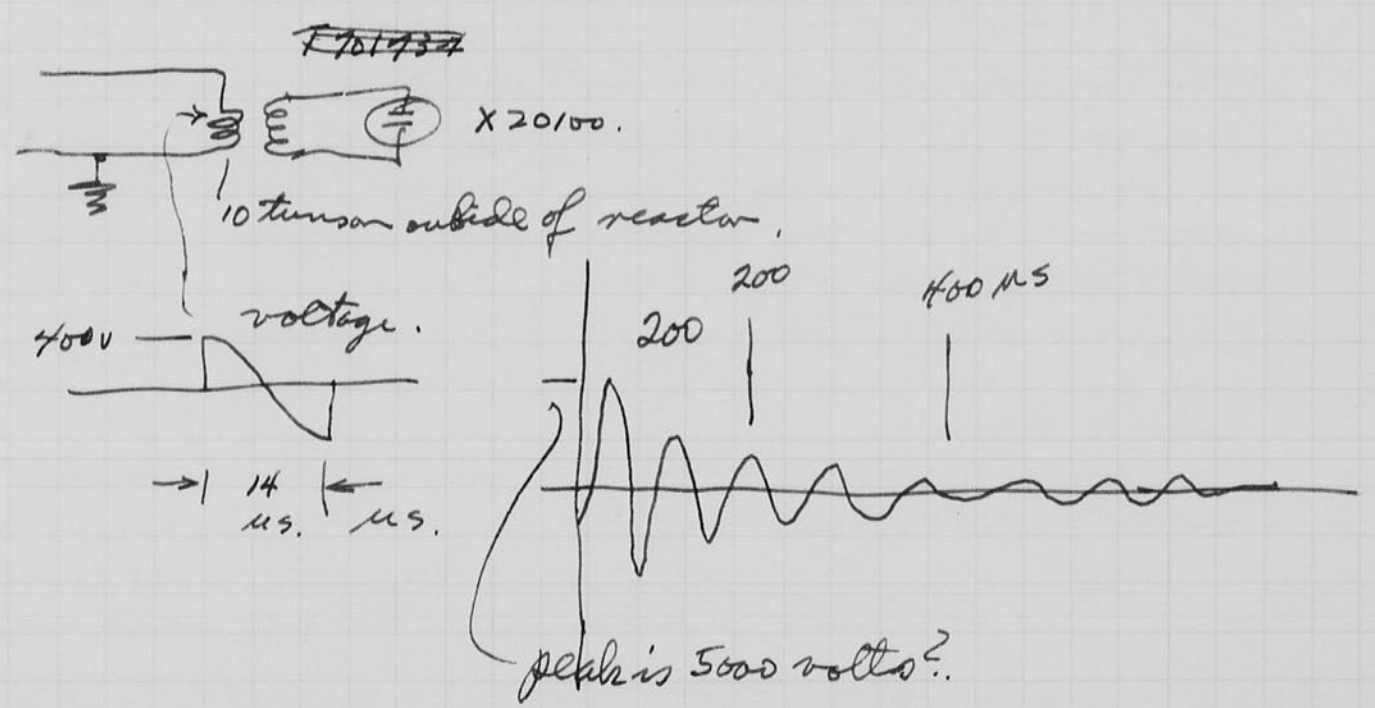 X 20100.
10 turns on outside of reactor.
voltage.
400V
14
μs.
μs.
200
200
400 μs
peak is 5000 volts?.